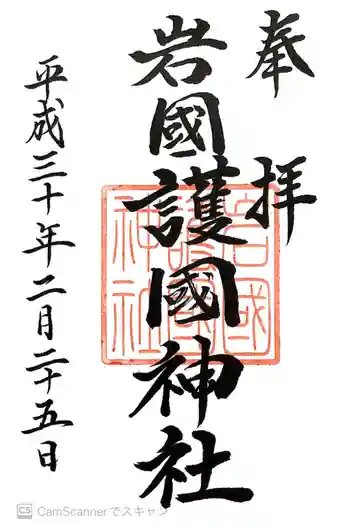 奉拝
岩國護國神社
平成三十年二月二十五日
岩國
護國
神社
CS CamScannerでスキャン